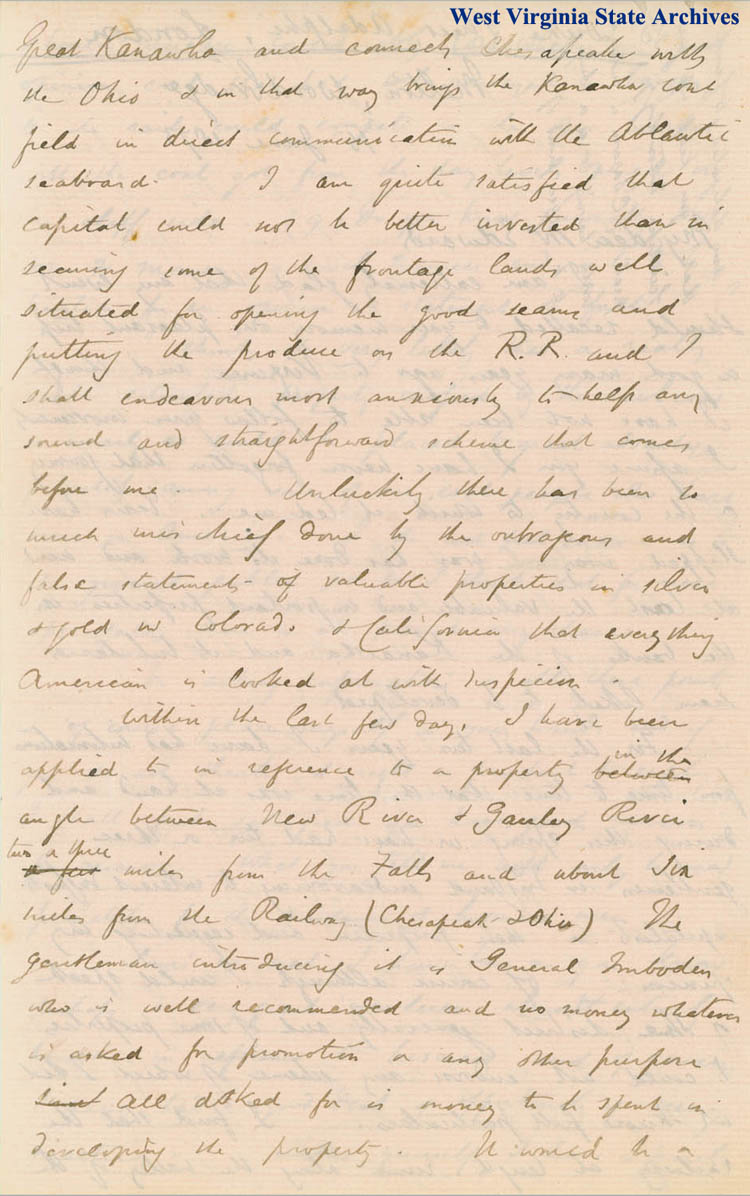 West Virginia State Archives
Great Kanawha and connects Chesapeake with
the Ohio & in that way brings the Kanawha coal
field in direct communication with the Atlantic
seaboard. I am quite satisfied that
Capital could not be better invested than in
securing some of the frontage lands well
situated for opening the good seams and
putting the produce on the R.R. and I
shall endeavour most anxiously to help any
sound and straightforward scheme that comes
before me. Unluckily there has been so
much mischief done by the outrageous and
false statements of valuable properties in silver
& gold in Colorado & California that everything
American is looked at with suspicion.
Within the last few days, I have been
applied to in reference to a property between in the
angle between New River & Gauley River
two or three
a few miles from the Falls and about six
miles from the Railway (Chesapeak & Ohio) The
gentleman introducing it is General Imboden
who is well recommended and no money whatever
is asked for promotion or any other purpose
All asked for is money to be spent in
developing the property. It would be a